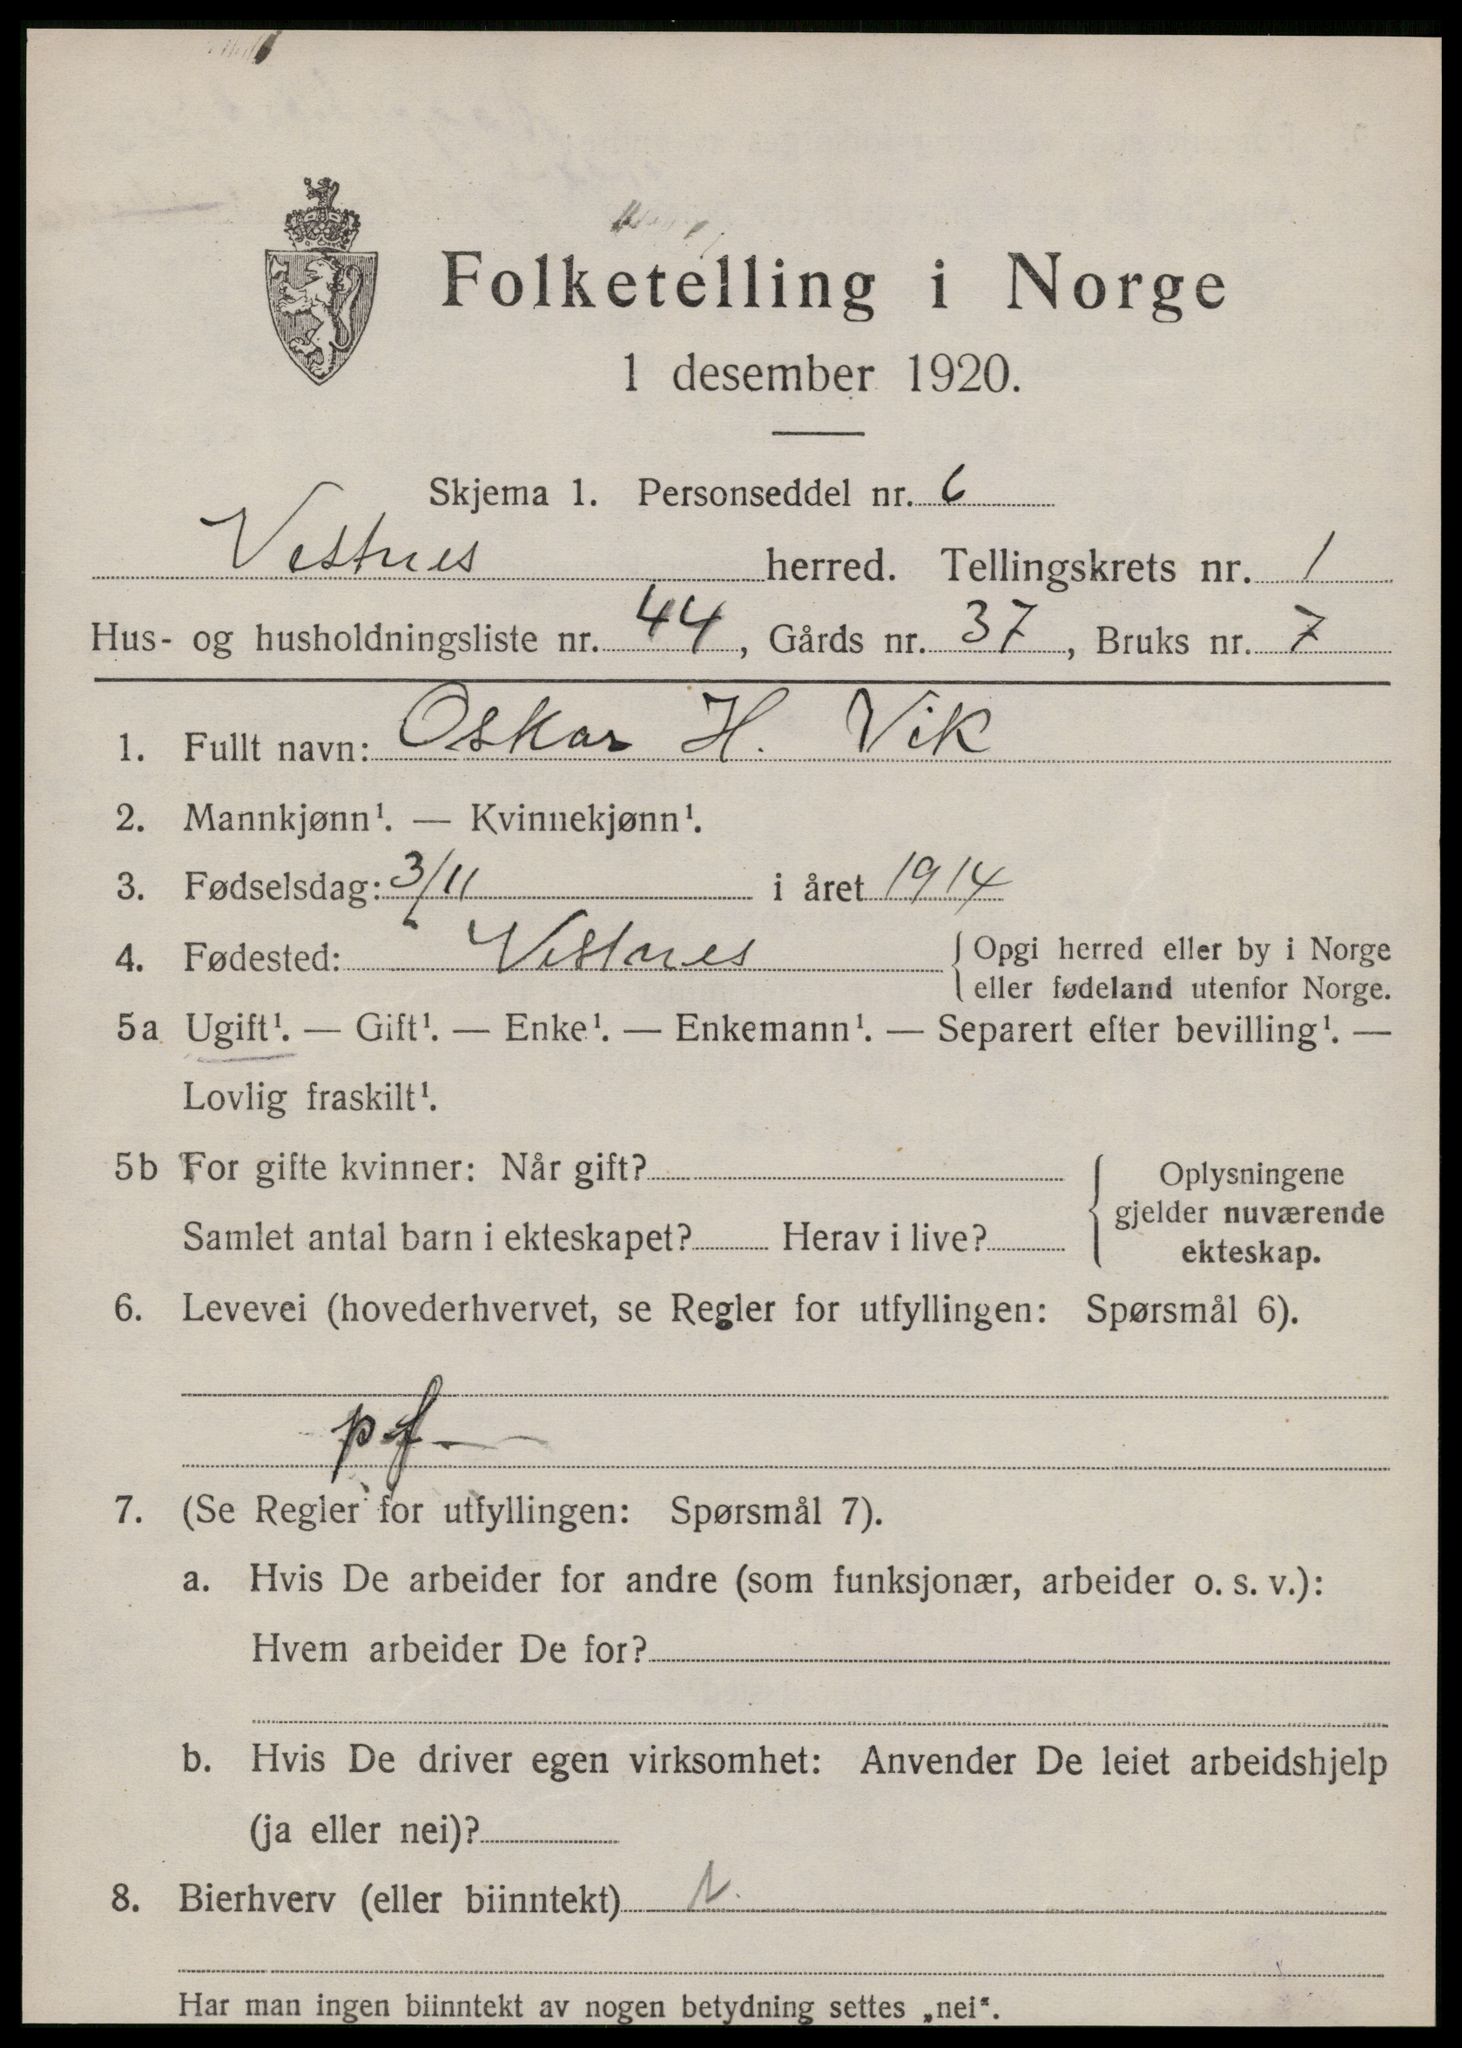 Folketelling i Norge
1 desember 1920.
Skjema 1. Personseddel nr. 6
Vestnes herred. Tellingskrets nr. 1
Hus- og husholdningsliste nr. 44, Gårds nr. 37, Bruks nr. 7
1. Fullt navn: Oskar H. Vik
2. Mannkjønn¹. — Kvinnekjønn¹.
3. Fødselsdag: 3/11 i året 1914
4. Fødested: Vestnes { Opgi herred eller by i Norge
eller fødeland utenfor Norge.
5a Ugift¹. — Gift¹. — Enke¹. — Enkemann¹. — Separert efter bevilling¹. —
Lovlig fraskilt¹.
5b For gifte kvinner: Når gift?
Samlet antal barn i ekteskapet? Herav i live?
{ Oplysningene
gjelder nuværende
ekteskap.
6. Levevei (hovederhvervet, se Regler for utfyllingen: Spørsmål 6).
pf —
7. (Se Regler for utfyllingen: Spørsmål 7).
a. Hvis De arbeider for andre (som funksjonær, arbeider o. s. v.):
Hvem arbeider De for?
b. Hvis De driver egen virksomhet: Anvender De leiet arbeidshjelp
(ja eller nei)?
8. Bierhverv (eller biinntekt) N.
Har man ingen biinntekt av nogen betydning settes „nei“.